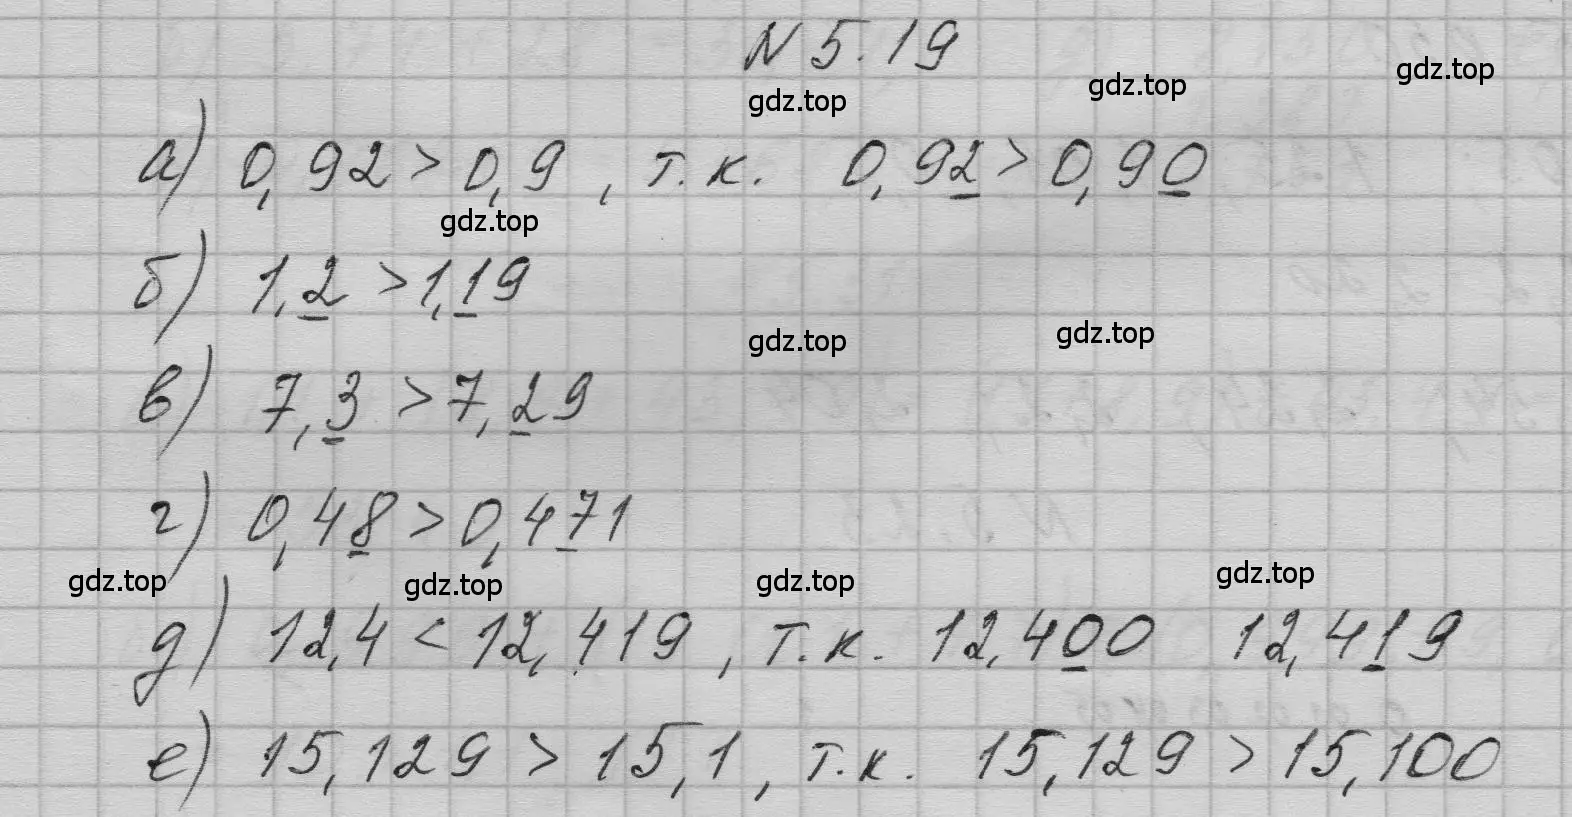 N 5.19
gdz.top gdz.top gdz.top
а) 0,92 > 0,9 , т.к. 0,92 > 0,90
gdz.top
б) 1,2 > 1,19
gdz.top gdz.top
в) 7,3 > 7,29
г) 0,48 > 0,471
gdz.top gdz.top gdz.top gdz.top
д) 12,4 < 12,419 , т.к. 12,400 12,419
е) 15,129 > 15,1 , т.к. 15,129 > 15,100